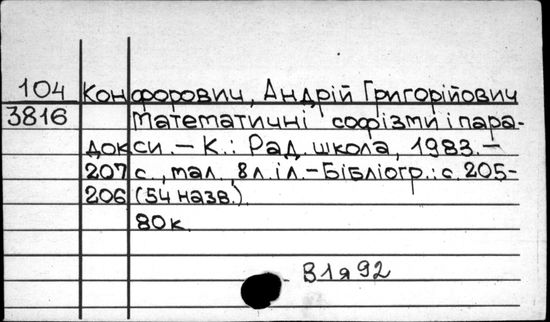 104 Конфорович, Андрій Григорійович
3816 Математичні софізми і пара-
докси. – К.: Рад. школа, 1983. –
207 с., мал., 8 л. іл. – Бібліогр.: с. 205-
206 (54 назв.).
80 к.
В1я92